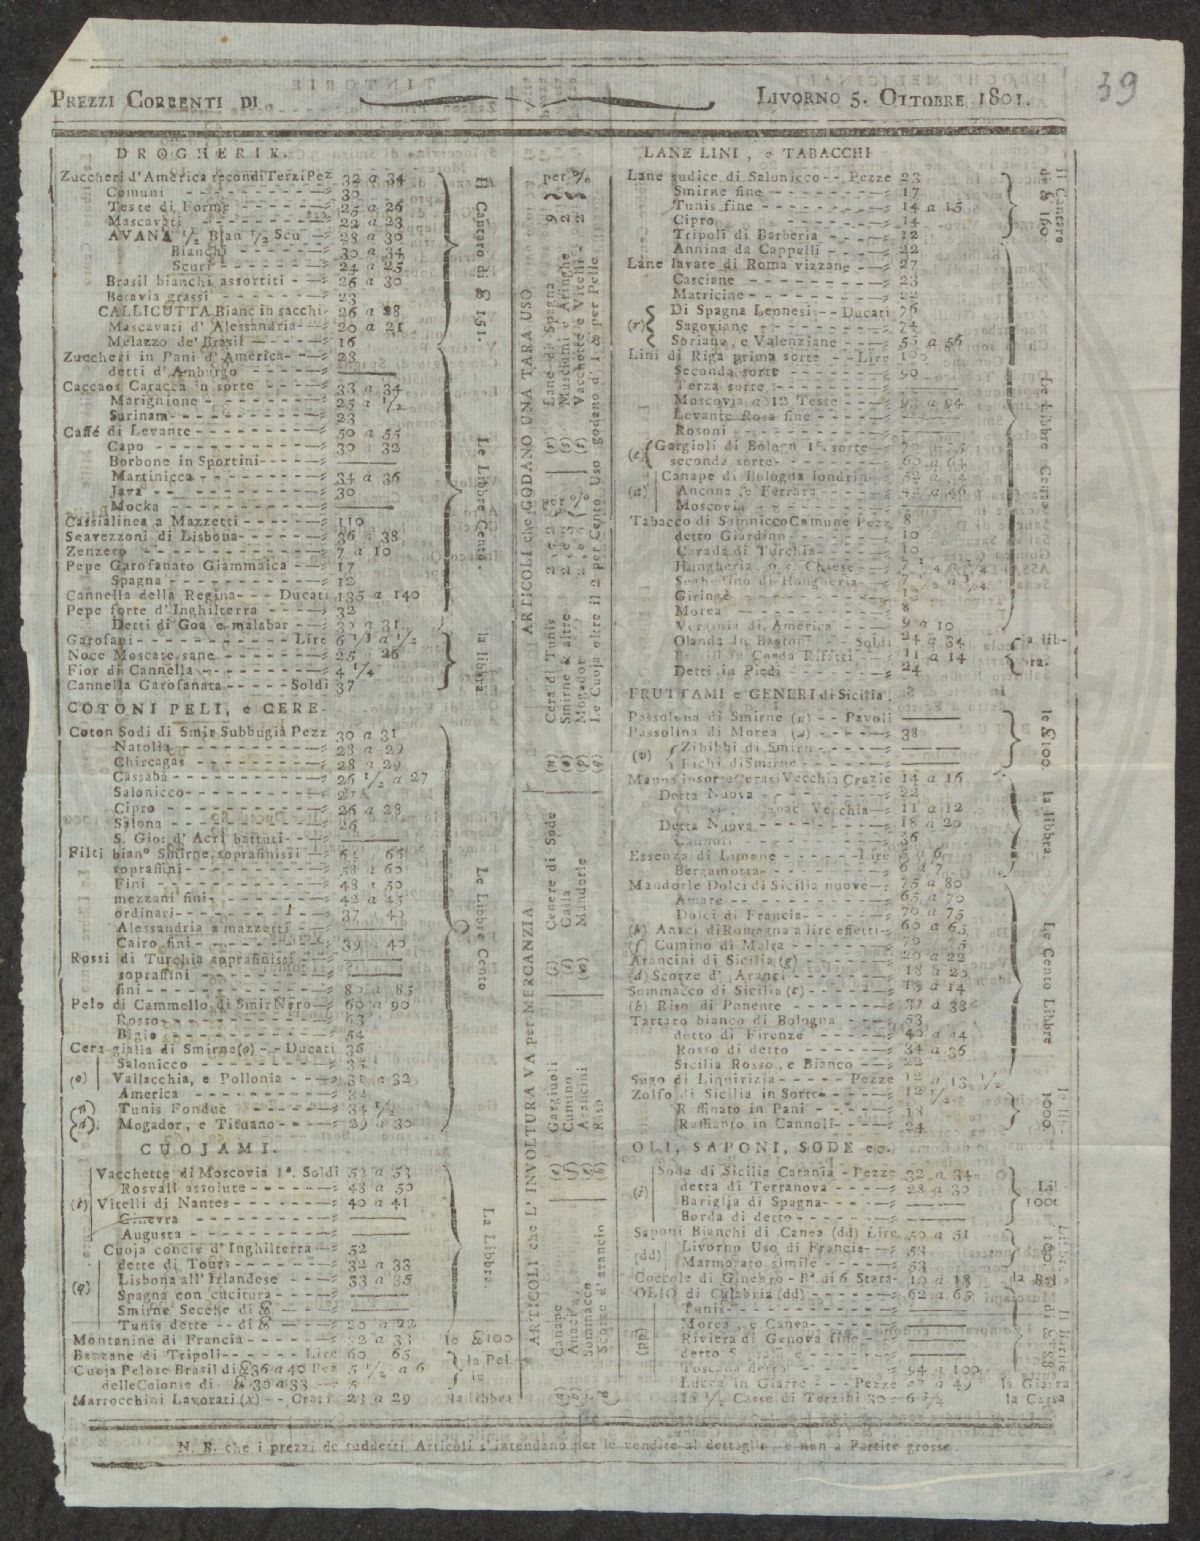 39
PREZZI CORRENTI DI
LIVORNO 5. OTTOBRE 1801.
DROGHERIE.
Zuccheri d'America secondi Terzi Pez 32 a 34
Comuni 30
Teste di Forme 25 a 26
Mascavati 22 a 23
AVANA 1/2 Bian 1/2 Scu 28 a 30
Bianchi 30 a 34
Scuri 24 a 25
Brasil bianchi assortiti 26 a 30
Betavia grassi 23
CALLICUTTA Bianc in sacchi 26 a 28
Mascavati d'Alessandria 20 a 21
Melazzo de' Brasil 16
Zuccheri in Pani d'America 28
detti d'Anburgo
Caccaos Caracca in sorte 33 a 34
Marignione 25 a 1/2
Surinam 23
Caffé di Levante 50 a 55
Capo 30 a 32
Borbone in Sportini
Martinicca 34 a 36
Java 30
Mocka
Cassialinea a Mazzetti 110
Scavezzoni di Lisbona 36 a 38
Zenzero 7 a 10
Pepe Garofanato Giammaica 17
Spagna 12
Cannella della Regina Ducati 135 a 140
Pepe forte d'Inghilterra 32
Detti di Goa e malabar 30 a 31
Garofani Lire 6 1/3 a 1/2
Noce Moscate sane 25 26
Fior di Cannella 4 1/4
Cannella Garofanata Soldi 37
Il Cantaro di ℔ 151.
Le Libbre Cento.
la libbra
COTONI PELI, e CERE.
Coton Sodi di Smir Subbugia Pezz 30 a 31
Natolia 28 a 29
Chircagas 28 a 29
Cassabà 26 1/2 a 27
Salonicco 27
Cipro 26 a 28
Salona 26
S. Gio: d'Acri battuti
Filti bianº Smirne soprafinissi 61 65
sopraffini 58 a 60
Fini 48 50
mezzani fini 42 a 45
ordinari 37 40
Alessandria a mazzetti
Cairo fini 39 40
Rossi di Turchia soprafinissi
sopraffini
fini 80 a 85
Pelo di Cammello di Smir Nero 60 a 90
Rosso 63
Bigio 54
Cera gialla di Smirne (o) Ducati 36
Salonicco 35
(o) Vallacchia, e Pollonia 31 a 32
America 32
(n) Tunis Fondue 34 1/2
Mogador, e Tituano 29 a 30
Le Libbre Cento
CUOJAMI.
Vacchette di Moscovia 1ª. Soldi 52 a 53
Rosvall assolute 48 a 50
(t) Vitelli di Nantes 40 a 41
Ginevra
Augusta
Cuoja concie d'Inghilterra 52
dette di Tours 32 a 33
(q) Lisbona all'Irlandese 33 a 35
Spagna con cucitura
Smirne Secche di ℔
Tunis dette di ℔ 20 a 22
Montonine di Francia 32 a 33 le ℔ 100
Bazzane di Tripoli Lire 60 65 la Pel.
Cuoja Pelose Brasil di ℔ 36 a 40 Pez 5 1/2 a 6
delle Colonie di ℔ 30 a 33 5
Marrocchini Lavorati (x) Crazi 21 a 29 la libbra
La Libbra.
ARTICOLI che GODANO UNA TARA USO
per %
(r) Lane di Spagna 9
(s) Muscimi e Aringhe 2
(t) Vacchette e Vitelli 2
(n) Cera di Tunis
(o) Smirne & altre
(p) Mogador
(q) Le Cuoja oltre il 2 per Cento Uso godano d'1 ℔ per Pelle
ARTICOLI che L'INVOLTURA VA per MERCANZIA.
(i) Cenere di Sode
(l) Galla
(m) Mandorle
(e) Gargiuoli
(f) Cumino
(g) Arancini
(h) Riso
(a) Canape
(b) Anaci,
(c) Sommacco
(d) Scorze d'arancio
LANE LINI, e TABACCHI
Lane sudice di Salonicco Pezze 23
Smirne fine 17
Tunis fine 14 a 15
Cipro 14
Tripoli di Barberia 12
Annina da Cappelli 22
Lane lavate di Roma vizzane 27
Casciane 23
Matricine 22
(r) Di Spagna Leonesi Ducati 76
Sagoviane 74
Soriane, e Valenziane 55 a 56
Lini di Riga prima sorte Lire 100
Seconda sorte 90
Terza sorte
Moscovia a 12 Teste 93 a 94
Levante Rosa fine
Rosoni
(e) Gargioli di Bologn 1ª. sorte 70 a 75
seconda sorte 60 a 64
Canape di Bologna londrin
(a) Ancona, e Ferrara
Moscovia
Tabacco di Salonicco Comune Pezz 8
detto Giardino 10
Carada di Turchia 10
Hungheria
Giringè
Morea 8
Verginia di America 9 a 10
Olanda in Baston Soldi 24 a 34
Brasil in Corda Rifitti 11 a 14
Detti in Piedi 24
Il Cantaro di ℔ 160.
Le Libbre Cento.
la libbra.
FRUTTAMI e GENERI di Sicilia.
Passolona di Smirne (u) Pavoli
Passolina di Morea (u) 38
(v) Zibibbi di Smirn
Fichi di Smirne
Manna in sorte Cerasi Vecchia Crazie 14 a 16
Detta Nuova 22
Vecchia 11 a 12
Detta Nuova 18 a 20
Cannoli 36
Essenza di Limone Lire
Bergamotta a 7
Mandorle Dolci di Sicilia nuove 75 a 80
Amare 65 a 70
Dolci di Francia 70 a 75
(b) Anaci di Romagna a lire effetti 60 a 65
(f) Cumino di Malta 70 75
Arancini di Sicilia (g) 20 a 22
(d) Scorze d'Aranci 18 a 25
Sommacco di Sicilia (c) 13 a 14
(h) Riso di Ponente 37 a 38
Tartaro bianco di Bologna 53
detto di Firenze 40 a 44
Rosso di detto 34 a 36
Sicilia Rosso, e Bianco 22
Sugo di Liquirizia Pezze 12 a 13 1/2
Zolfo di Sicilia in Sorte 12 1/2
Raffinato in Pani 18
Raffianto in Cannoli 24
le ℔ 100.
la libbra.
Le Cento Libbre
le lib. 1000.
OLI, SAPONI, SODE ec.
(i) Soda di Sicilia Catania Pezze 32 a 34
detta di Terranova 28 a 30
Bariglia di Spagna
Borda di detto
Lib. 1000
Saponi Bianchi di Canea (dd) Lire 50 a 51
(dd) Livorno Uso di Francia 53
Marmorato simile 53
Coccole di Ginebro P. di 6 Stara 10 a 18 la Bal
OLIO di Calabria (dd) 62 a 65
Tunis
Morea, e Canea
Riviera di Genova fine
detto
Toscana detto 94 a 100
Lucca in Giarre Pezze a 49 la Giarra
In 1/2 Casse di Terzini 30 6 1/2 la Cassa
Il Barile di ℔ 88
N. B. che i prezzi de suddetti Articoli s'intendano per le vendite al dettaglio, e non a Partite grosse.